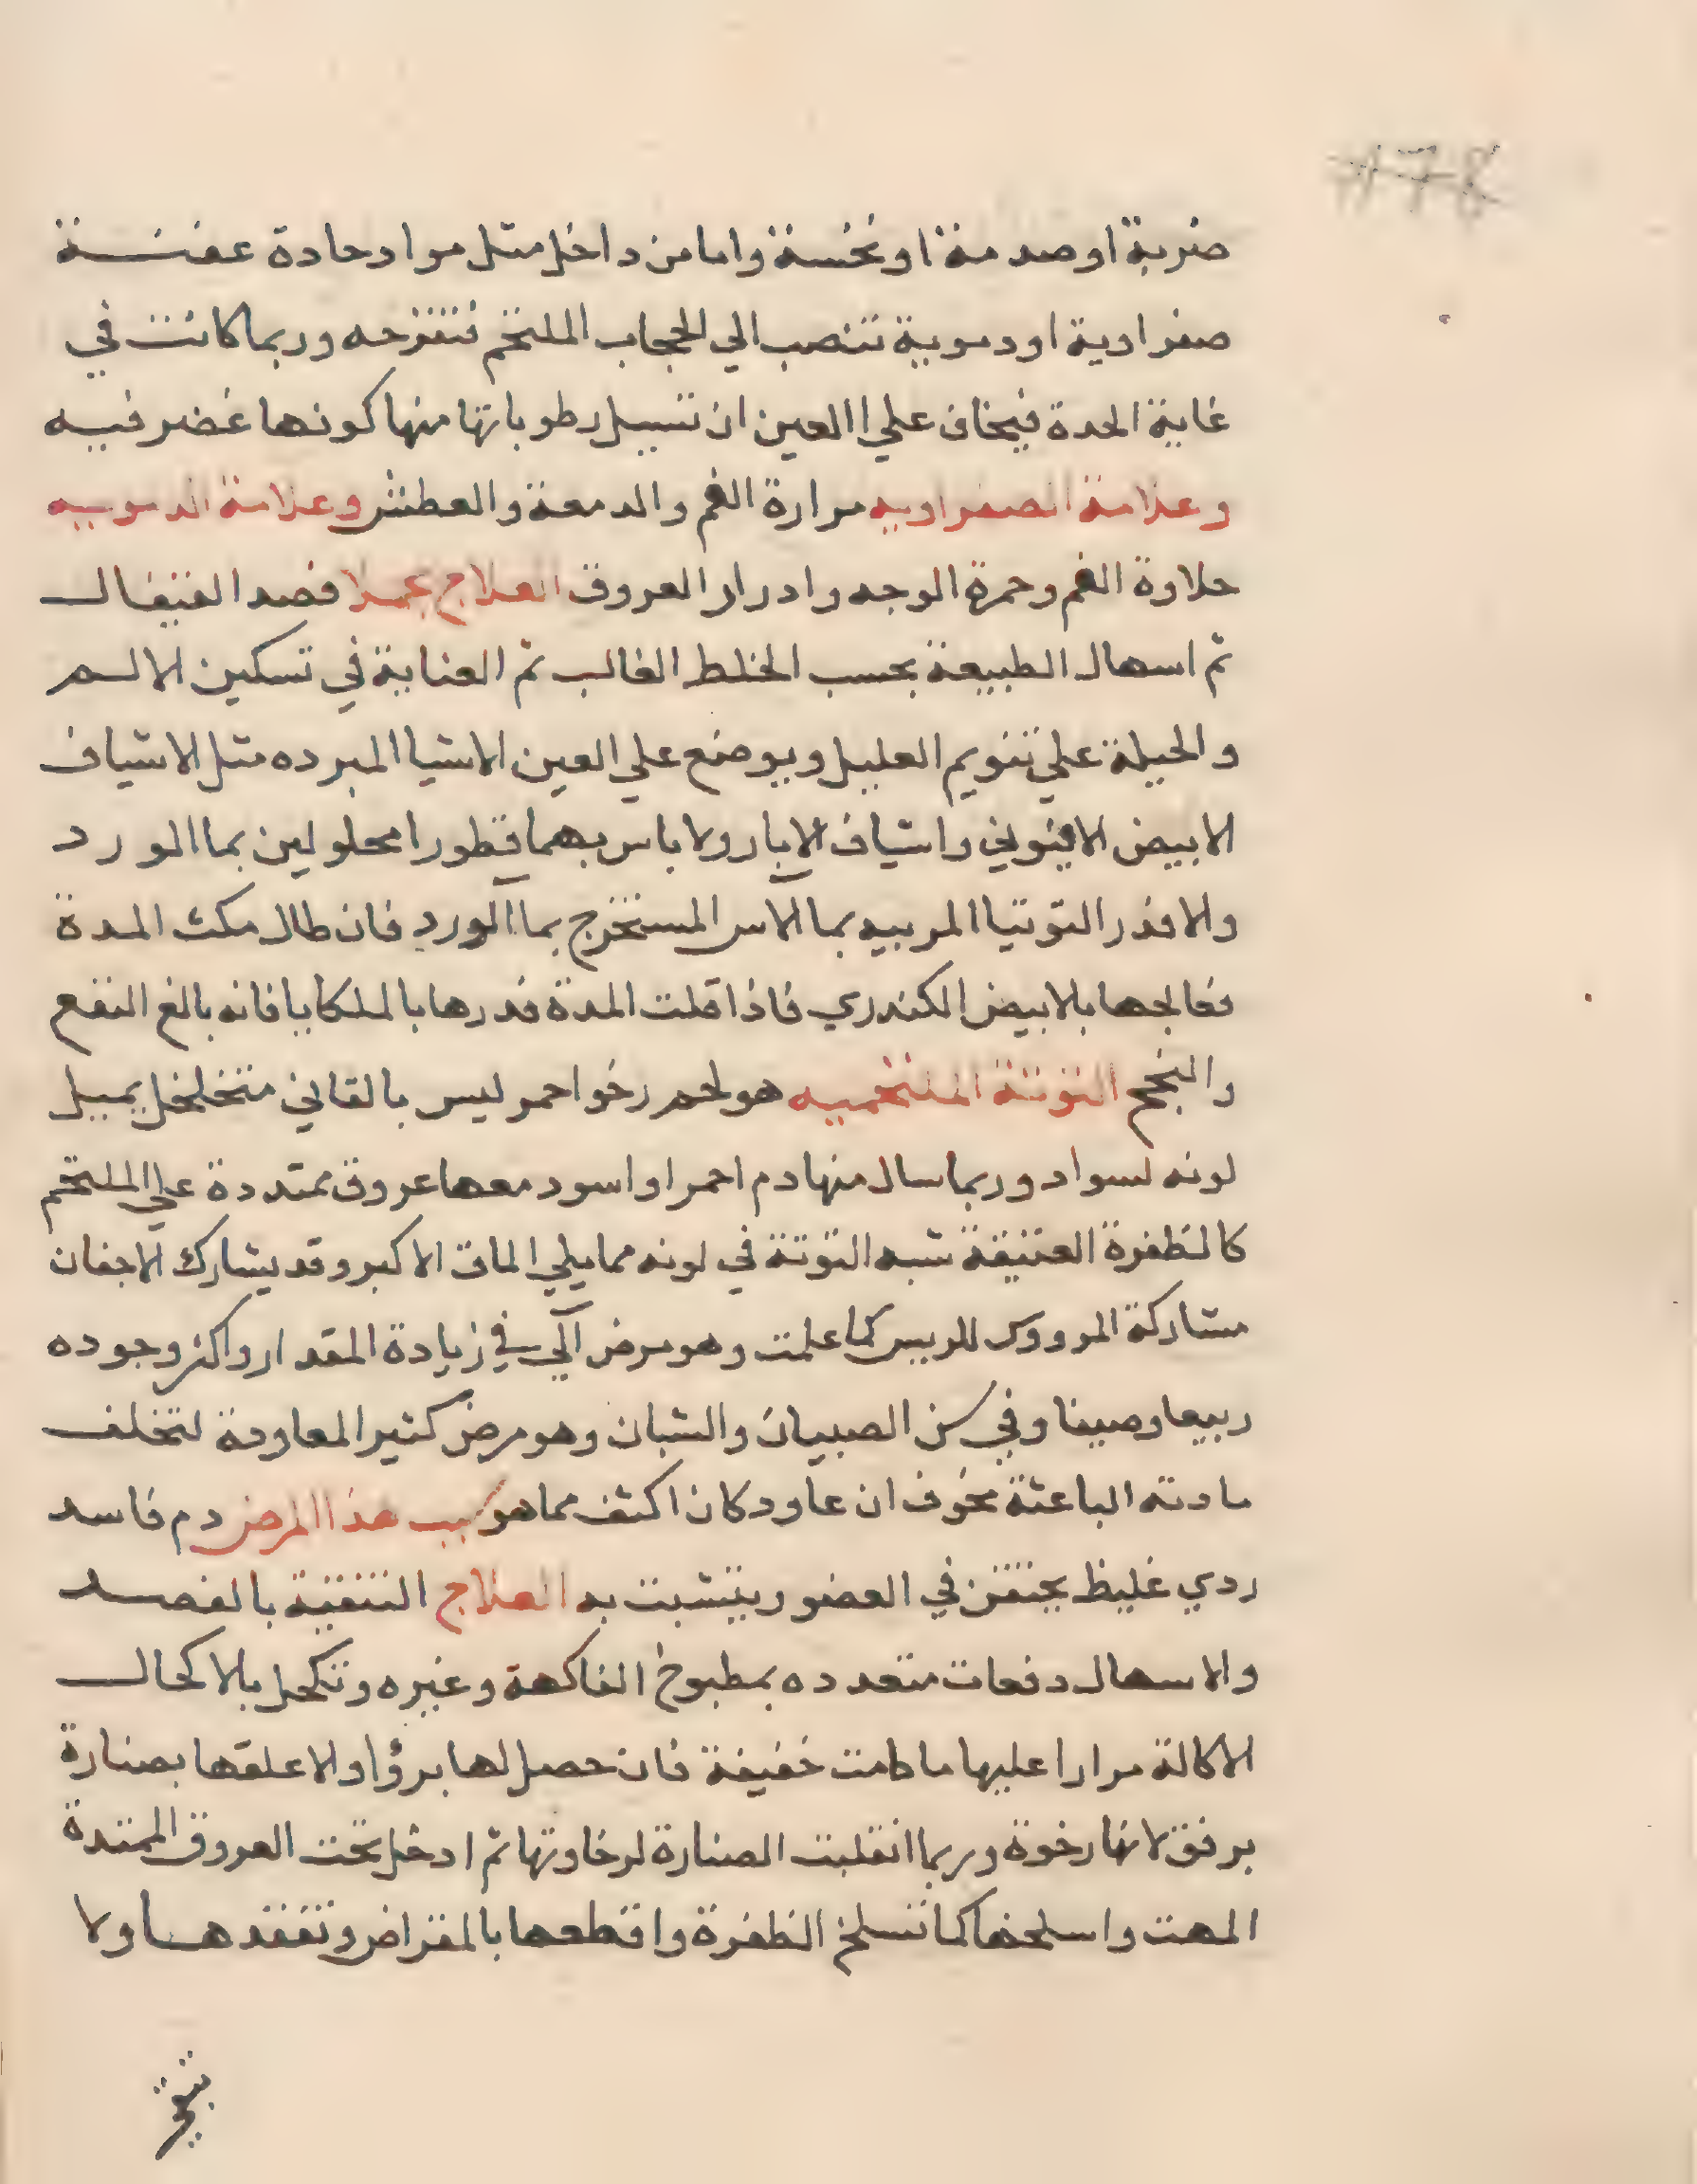 #78
ضربة او صدمة او نخسة واما من داخل مثل مواد حادة عفنـــة
صفراوية او دموية تنصب الي الحجاب الملتحم فتقرحه وربما كانت في
غاية الحدة فيخاف علي االعين ان تسيل رطوباتها منها كونها غضر فيه
وعلامة الصفراويه مرارة الفم والدمعة والعطش وعلامة الدمويه
حلاوة الفم وحمرة الوجه وادرار العروق العلاج مجملا فصد القيفال
ثم اسهال الطبيعة بحسب الخلط الغالب ثم العناية في تسكين الالـم
والحيلة علي تنويم العليل ويوضع علي العين الاشيا المبرده مثل الاشياف
الابيض الافيوني واشياف الابار ولا باس بهما قطورا محلولين بما الورد
والا فذر التوتيا المربيه بما الآس المستخرج بما الورد فان طال مكث المدة
فعالجها بالابيض الكندري فاذا قلت المدة فذرها بالملكايا فانه بالغ النفع
والنجح التوتة الملتحميه هو لحم رخو احمر ليس بالقاني متخلخل يميل
لونه لسواد وربما سال منها دم احمر او اسود معها عروق ممتددة علي الملتحم
كالظفرة العتيقة شبه التوتة في لونه مما يلي الماق الاكبر وقد يشارك الاجفان
مشاركة المرووس للرييس كما علمت وهو مرض آلي في زيادة المقدار واكثر وجوده
ربيعا وصيفا وفي سن الصبيان والشبان وهو مرض كثير المعاودة لتخلف
مادته الباعثة مخوف ان عاود كان اكثف مما هو سبب هذا المرض دم فاسد
ردي غليظ يحتقن في العضو ويتشبت به العلاج التنقية بالفصـد
والاسهال دفعات متعدده بمطبوخ الفاكهة وغيره وتكحل بالاكحال
الاكالة مرارا عليها ما دامت خفيفة فان حصل لها برؤ او الا علقها بصنارة
برفق لانها رخوة وربما انقلبت الصنارة لرخاوتها ثم ادخل تحت العروق الممتدة
المهت واسلخها كما تسلخ الظفرة واقطعها بالمقراض وتفقدهـا ولا